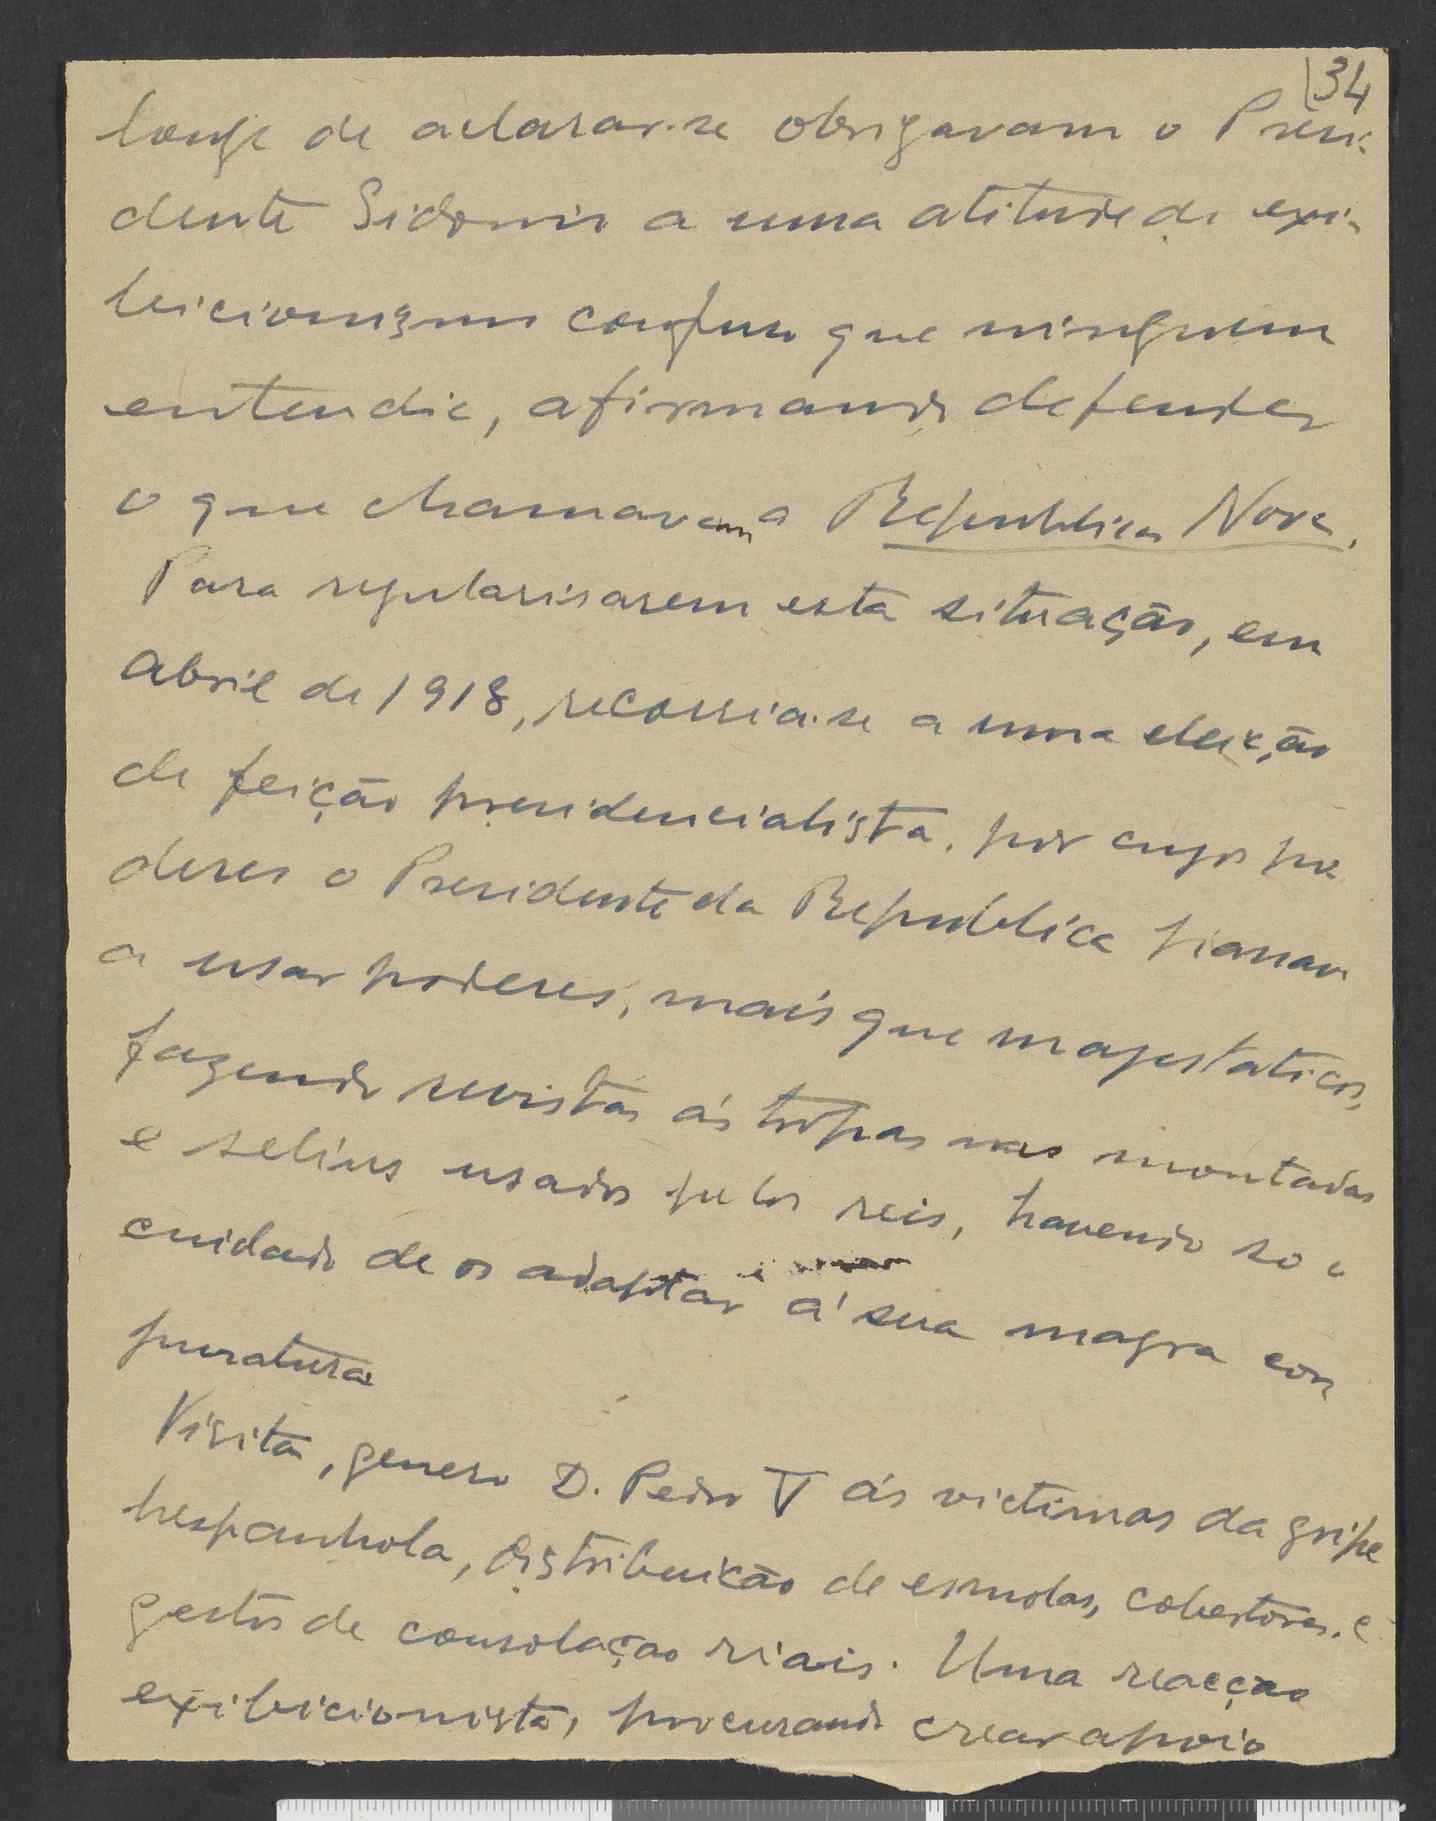 34
longe de aclarar-se obrigavam o Presi-
dente Sidonio a uma atitude de exi-
bicionizmo confuso que ninguem
entendia, afirmando defender
o que chamavam a Republica Nova.
Para regularisarem esta situação, em
abril de 1918, recorria-se a uma eleição
de feição presidencialista, por cujos po
deres o Presidente da Republica
a usar poderes, mais que magestaticos,
fazendo revistas ás tropas nas montadas
e selins usados pelos reis, havendo so o
cuidado de os adaptar á sua magra com
puratura
Visita, genero D. Pedro V ás victimas da gripe
hespanhola, distribuição de esmolas, cobertores, e
gestos de consolaçao riais. Uma reacçao
exibicionista, procurando crear apoio